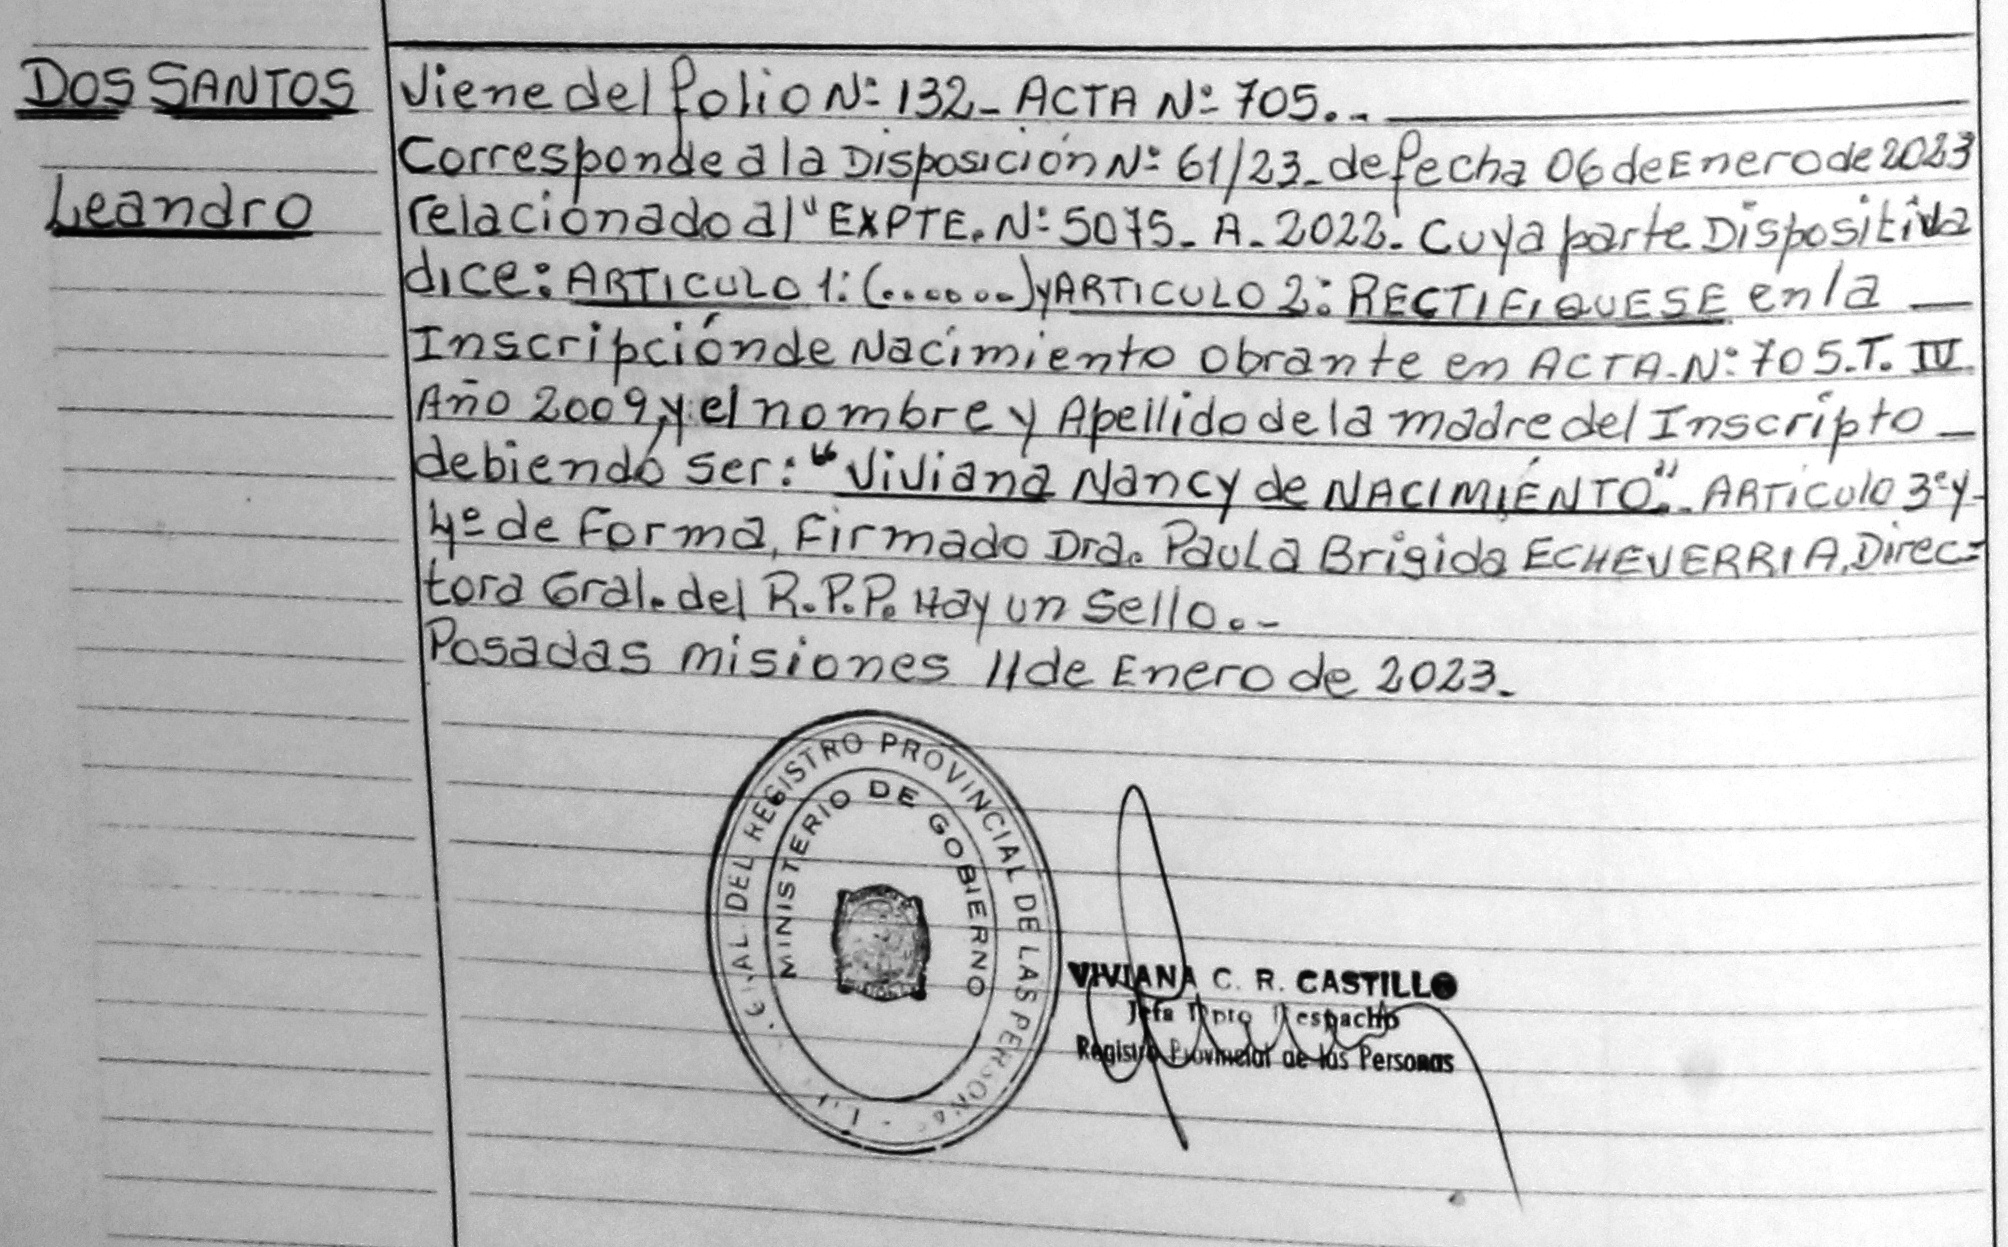 DOS SANTOS
Leandro
Viene del folio Nº 132_ ACTA Nº 705._
Corresponde a la Disposición Nº 61/23_ de fecha 06 de Enero de 2023
relacionado al "EXPTE. Nº 5075_ A_ 2022". Cuya parte Dispositiva
dice: ARTICULO 1: (.......) y ARTICULO 2: RECTIFIQUESE en la _
Inscripción de Nacimiento obrante en ACTA_Nº 705.T. IV
Año 2009, y el nombre y Apellido de la madre del Inscripto _
debiendo ser: "Viviana Nancy de NACIMIENTO"._ ARTiculo 3º y_
4º de Forma, Firmado Dra. Paula Brigida ECHEVERRIA, Direc=
tora Gral. del R.P.P. Hay un sello._
Posadas misiones 11 de Enero de 2023_
DEL REGISTRO PROVINCIAL DE LAS PERSONAS
MINISTERIO DE GOBIERNO
VIVIANA C. R. CASTILLO
Jefa Dpto Despacho
Registro Provincial de las Personas